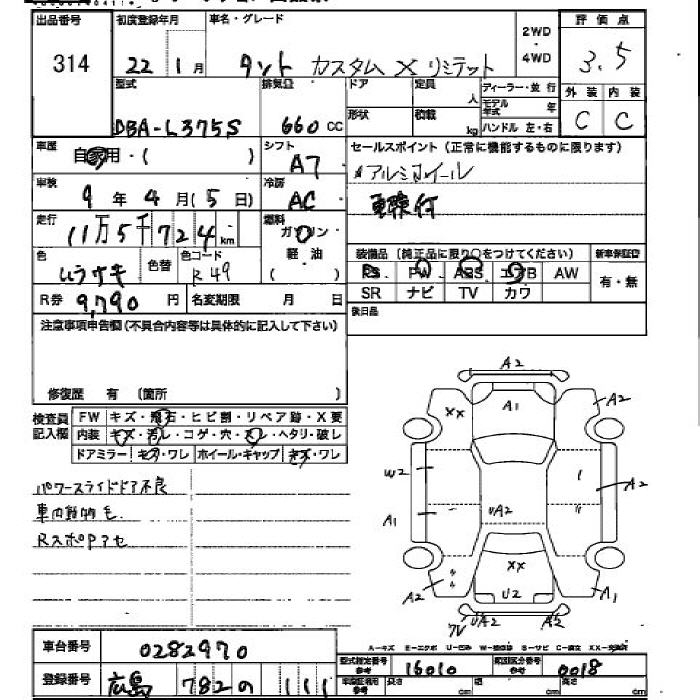 出品番号 初度登録年月 車名・グレード 2WD ・ 4WD 評価点
314 22年 1月 タント カスタム X リミテッド 3.5
型式 排気量 ドア 定員 人 ディーラー・並行 外装 内装
DBA-L375S 660 CC 形状 積載 kg モデル年式 年 ハンドル 左・右 C C
車歴 自家用・( ) シフト A7 セールスポイント(正常に機能するものに限ります)
アルミホイール
車検 9年4月(5日) 冷房 AC
走行 11万5千724km 燃料 ガソリン 軽油
色 ムラサキ 色替 色コード R49 装備品(純正品に限り○をつけてください) 新車保証書
PS PW ABS エアB AW 有・無
R券 9,790円 名変期限 月 日 SR ナビ TV カワ
注意事項申告欄(不具合内容等は具体的に記入して下さい) 後日品
修復歴 有 (箇所 )
検査員記入欄 FW キズ・飛石・ヒビ割・リペア跡・X要
内装 キズ・汚レ・コゲ・穴・スレ・ヘタリ・破レ
ドアミラー キズ・ワレ ホイール・キャップ キズ・ワレ
パワースライドドア不良
車内動物毛
A2
XX A1 A2
W2 A2
A1 UA2
XX
A2 U2 A1
UA2 A2
車台番号 0282970
型式指定番号 16010 類別区分番号 0018
登録番号 広島 782 の 111
長さ cm cm cm